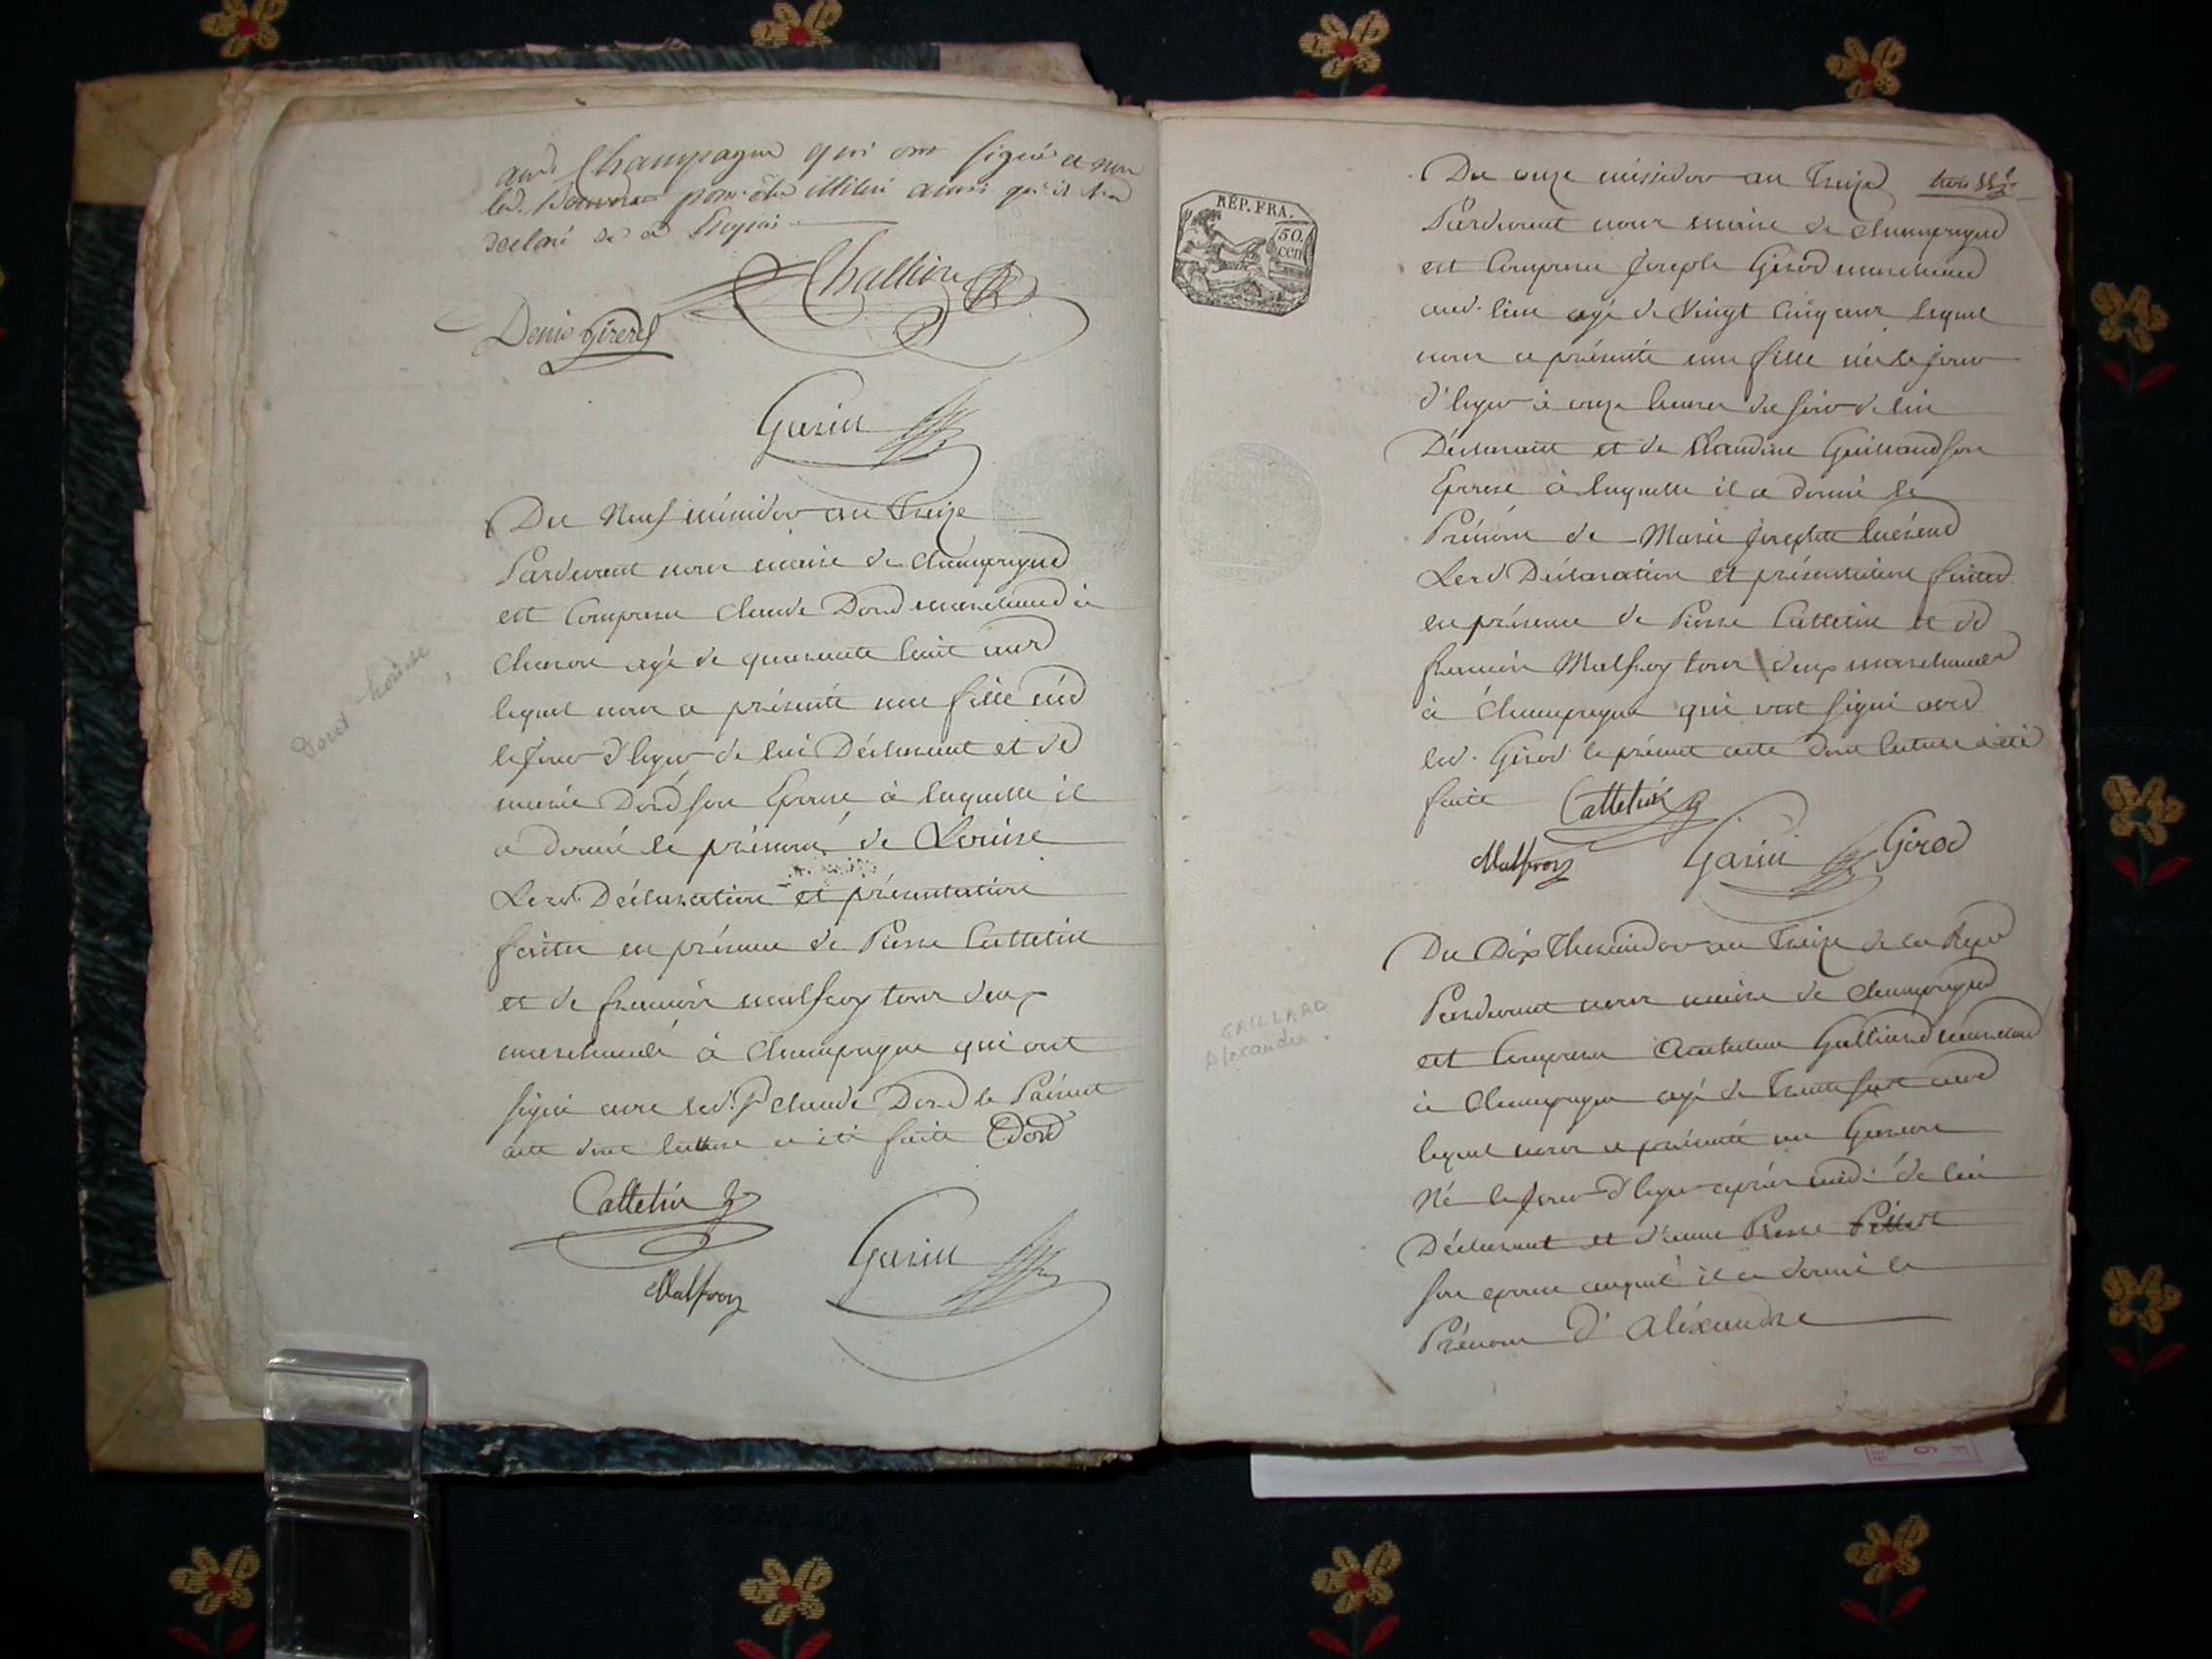 aud. Champagne qui ont signé et non
led. pour être illitéré ainsi qu'il l'a
déclaré de ce enquis
Challiere
Denis Girerd
Garin
Du Neuf messidor an Treize
Pardevant nous maire de Champagne
est comparu Claude Dord marchand à
âgé de quarante huit ans
lequel nous a présenté une fille née
le jour d'hyer de lui Déclarant et de
marie Dord son Epouse à laquelle il
a donné le prénom de Louise
Lesd. Déclaration et présentation
faittes en présence de Pierre Cattelin
et de françois malfroy tous deux
marchands à Champagne qui ont
signé avec led. Sr Claude Dord le Présent
acte dont lecture a été faite Dord
Cattelin
Garin
Malfroy
Doret Louise
RÉP. FRA.
50.
cen
Du onze méssidor an Treize
Pardevant nous maire de Champagne
est comparu Joseph Girod marchand
aud. lieu âgé de Vingt Cinq ans lequel
nous a présenté une fille née le jour
d'hyer à onze heures du soir de lui
Déclarant et de Claudine son
Epouse à laquelle il a donné le
Prénom de Marie Josephte
Lesd Déclaration et présentation faittes
en présence de Pierre Cattelin et de
françois Malfroy tous deux marchands
à Champagne qui ont signé avec
led. Girod le présent acte dont lecture a été
faite Cattelin
Malfroy Garin Girod
Du Dix Thermidor an Treize de la Rep
Pardevant nous maire de Champagne
est comparu marchand
à Champagne âgé de Trente sept ans
lequel nous a présenté un Garçon
Né le jour d'hyer après midi de lui
Déclarant et d'anne Pierre
son epouse auquel il a donné le
Prénom D'Aléxandre
GAILLARD
Alexandre.